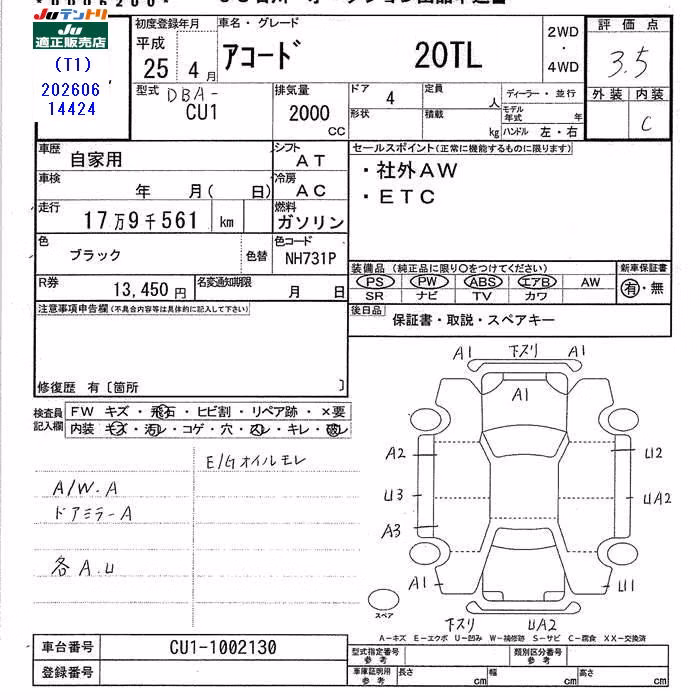 Juテントリ
Ju
適正販売店
(T1)
202606
14424
初度登録年月
平成
25 4月
車名・グレード
アコード 20TL
2WD
・
4WD
評価点
3.5
外装 内装
C
型式
DBA-
CU1
排気量
2000
CC
ドア
4
定員
人
ディーラー・並行
形状
積載
kg
モデル年式
年
ハンドル 左・右
車歴
自家用
シフト
AT
セールスポイント(正常に機能するものに限ります)
・社外AW
・ETC
車検
年 月( 日)
冷房
AC
走行
17万9千561 km
燃料
ガソリン
色
ブラック
色替
色コード
NH731P
装備品(純正品に限り○をつけてください)
新車保証書
PS PW ABS エアB AW
有・無
SR ナビ TV カワ
R券
13,450円
名変通知期限
月 日
後日品
保証書・取説・スペアキー
注意事項申告欄(不具合内容等は具体的に記入して下さい)
修復歴 有〔箇所 〕
検査員
記入欄
FW キズ・飛石・ヒビ割・リペア跡・×要
内装・キズ・汚レ・コゲ・穴・スレ・キレ・破レ
E/Gオイルモレ
A/W.A
ドアミラーA
各A.U
A1 下スリ A1
A1
A2 U2
U3 UA2
A3
A1 U1
下スリ UA2
スペア
A-キズ E-エクボ U-凹み W-補修跡 S-サビ C-腐食 XX-交換済
車台番号
CU1-1002130
登録番号
型式指定番号
参考
類別区分番号
参考
車庫証明用
参考
長さ
cm
幅
cm
高さ
cm